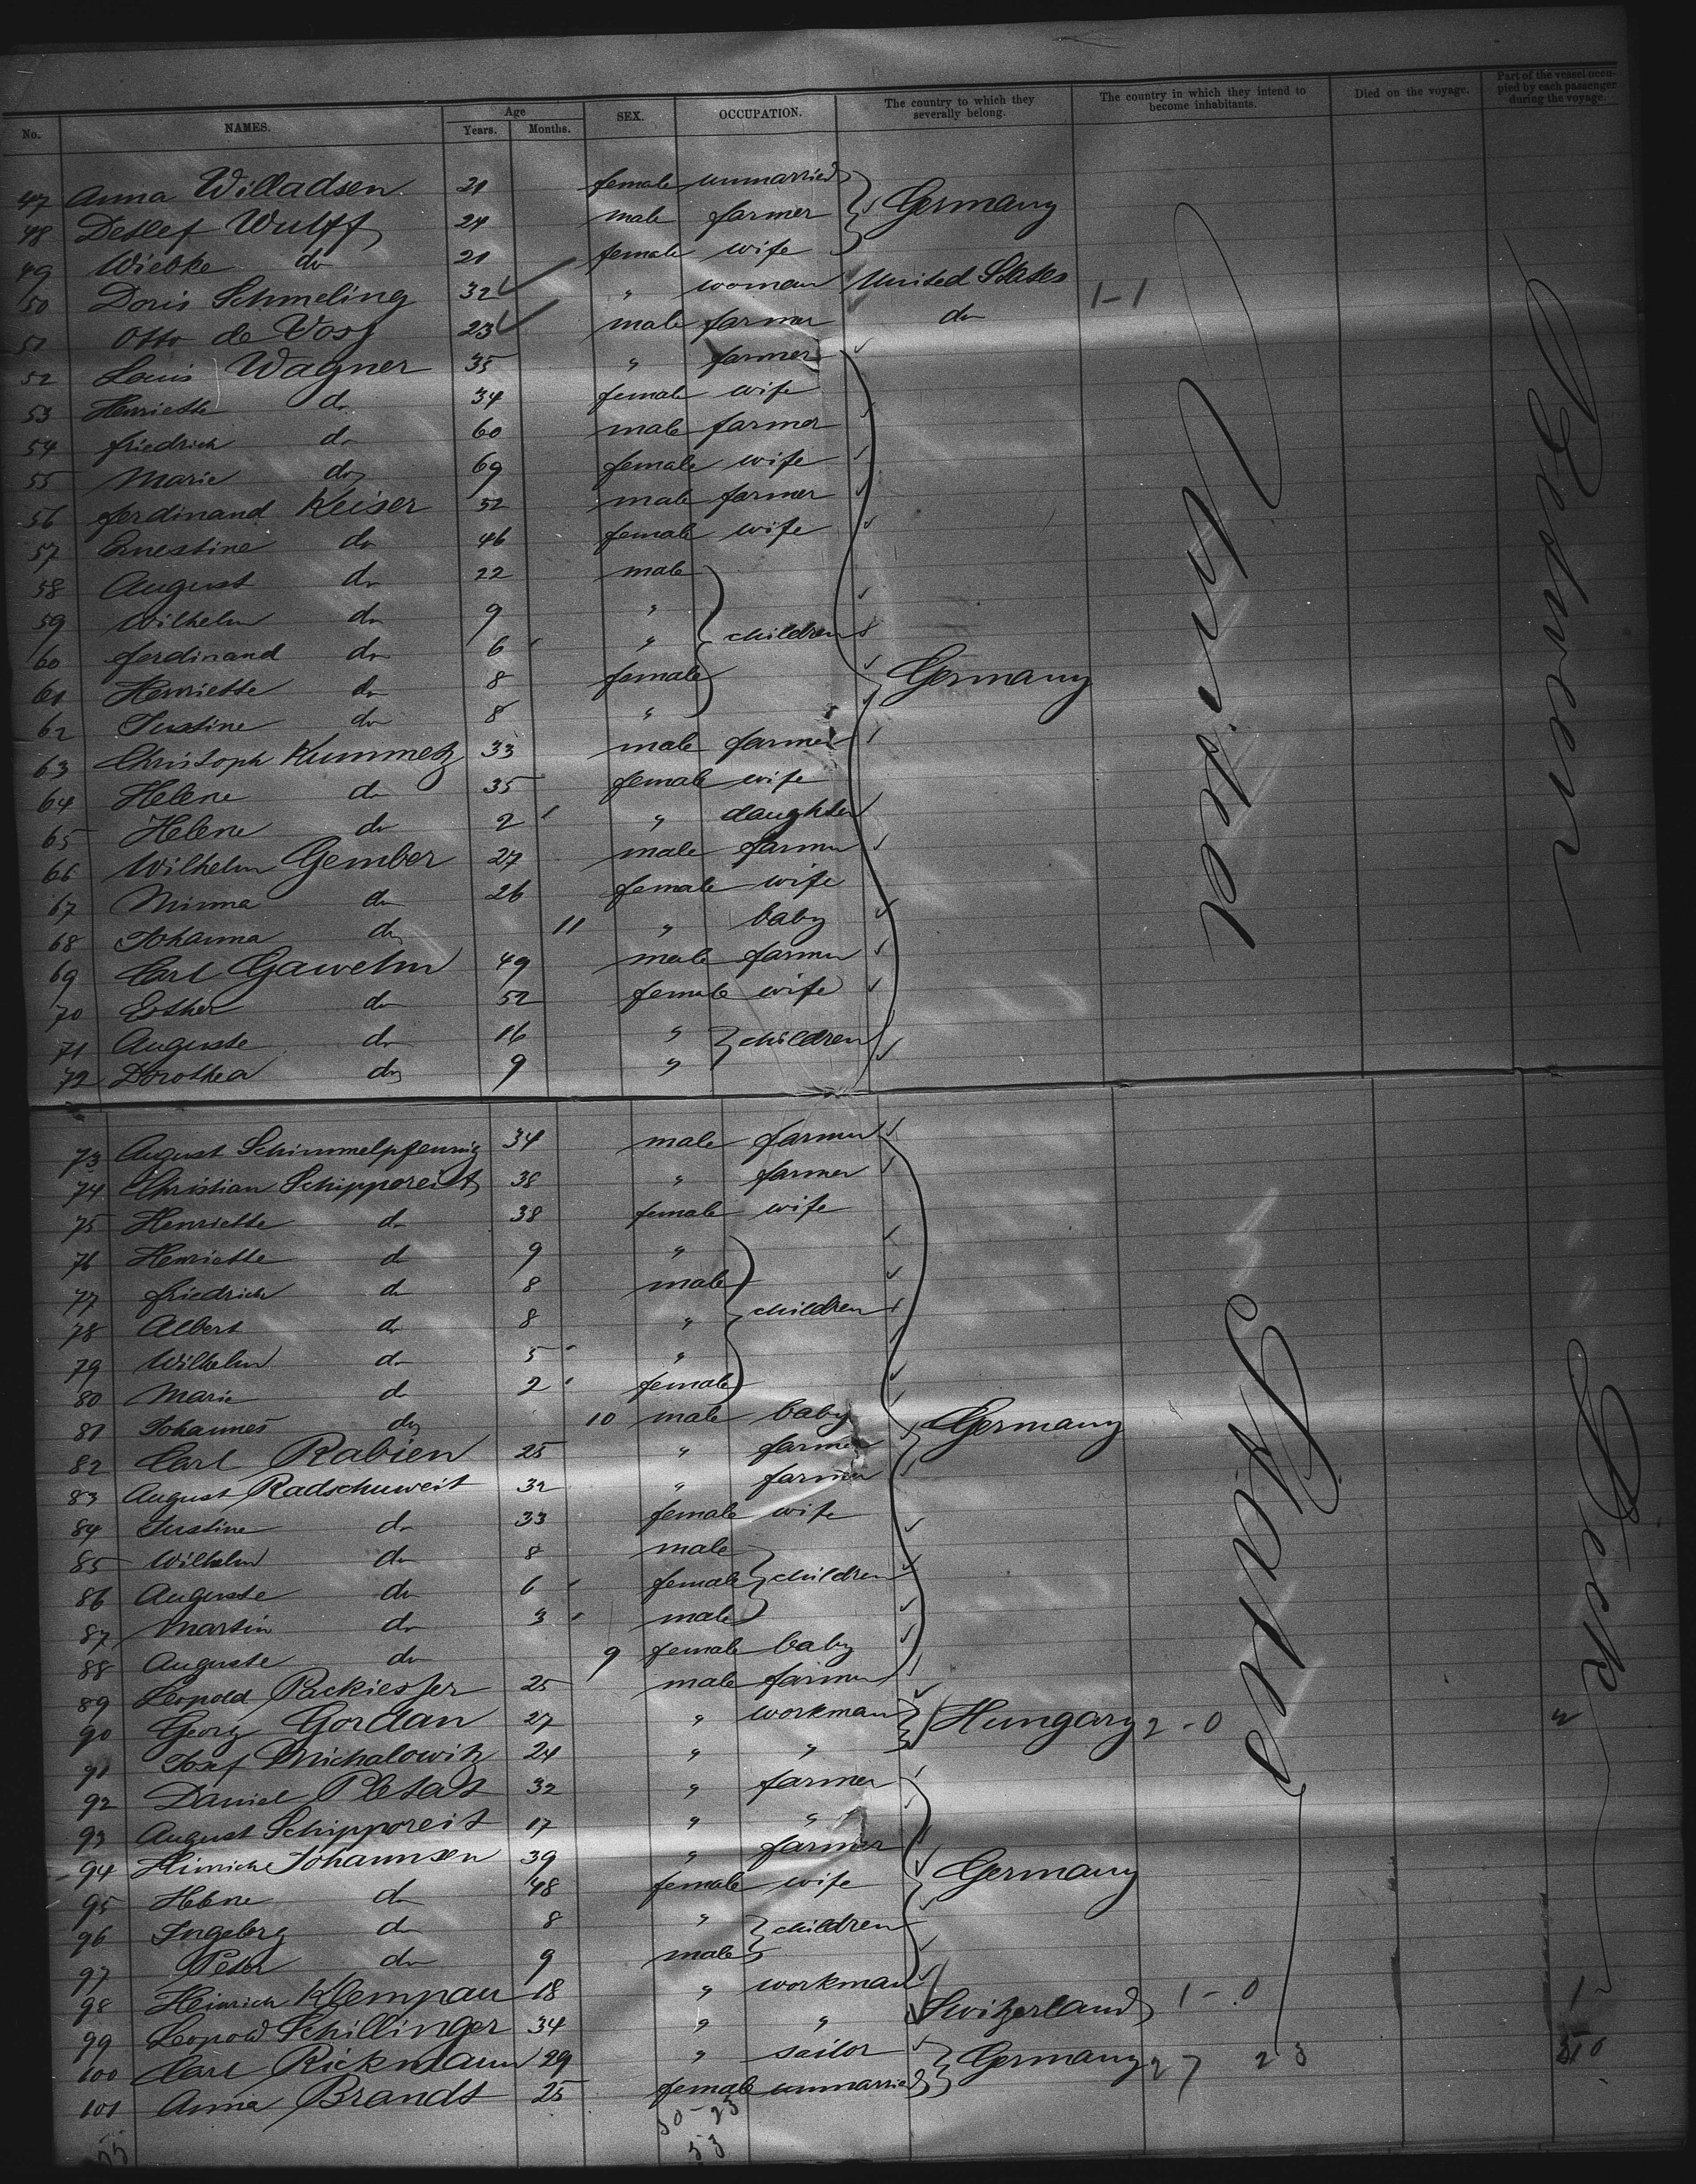 No. NAMES. Age Years. Months. SEX. OCCUPATION. The country to which they severally belong. The country in which they intend to become inhabitants. Died on the voyage. Part of the vessel occupied by each passenger during the voyage.
47 Anna Willadsen 21 female unmarried
48 Detlef Wulff 24 male farmer Germany
49 Wiebke do 21 female wife
50 Doris Schmeling 32 " woman United States 1-1
51 Otto de Vos 23 male farmer do
52 Louis Wagner 35 " farmer
53 Henriette do 34 female wife
54 Friedrich do 60 male farmer
55 Marie do 69 female wife
56 Ferdinand Keiser 52 male farmer
57 Ernestine do 46 female wife
58 August do 22 male
59 Wilhelm do 9 "
60 Ferdinand do 6 " children
61 Henriette do 8 female Germany
62 Justine do 8 "
63 Christoph Kummetz 33 male farmer
64 Helene do 35 female wife
65 Helene do 2 " daughter
66 Wilhelm Gember 27 male farmer
67 Minna do 26 female wife
68 Johanna do 11 " baby
69 Carl Gawehn 49 male farmer
70 Esther do 52 female wife
71 Auguste do 16 " children
72 Dorothea do 9 "
73 August Schimmelpfennig 34 male farmer
74 Christian Schipporeit 38 " farmer
75 Henriette do 38 female wife
76 Henriette do 9 "
77 Friedrich do 8 male
78 Albert do 8 " children
79 Wilhelm do 5 "
80 Marie do 2 female
81 Johannes do 10 male baby Germany
82 Carl Rabien 25 " farmer
83 August Radschuweit 32 " farmer
84 Justine do 33 female wife
85 Wilhelm do 8 male
86 Auguste do 6 female children
87 Martin do 3 male
88 Auguste do 9 female baby
89 Leopold Packiesser 25 male farmer
90 Georg Gordan 27 " workman Hungary 2-0
91 Josef Michalowitz 24 " "
92 Daniel Pletat 32 " farmer
93 August Schipporeit 17 " "
94 Hinrich Johannsen 39 " farmer Germany
95 Helene do 48 female wife
96 Ingeborg do 8 " children
97 Peter do 9 male
98 Heinrich Klempau 18 " workman
99 Leopold Schillinger 34 " " Switzerland 1-0
100 Carl Rickmann 29 " sailor Germany 27 23
101 Anna Brandt 25 female unmarried
30-23
53
United
States
Between
Deck